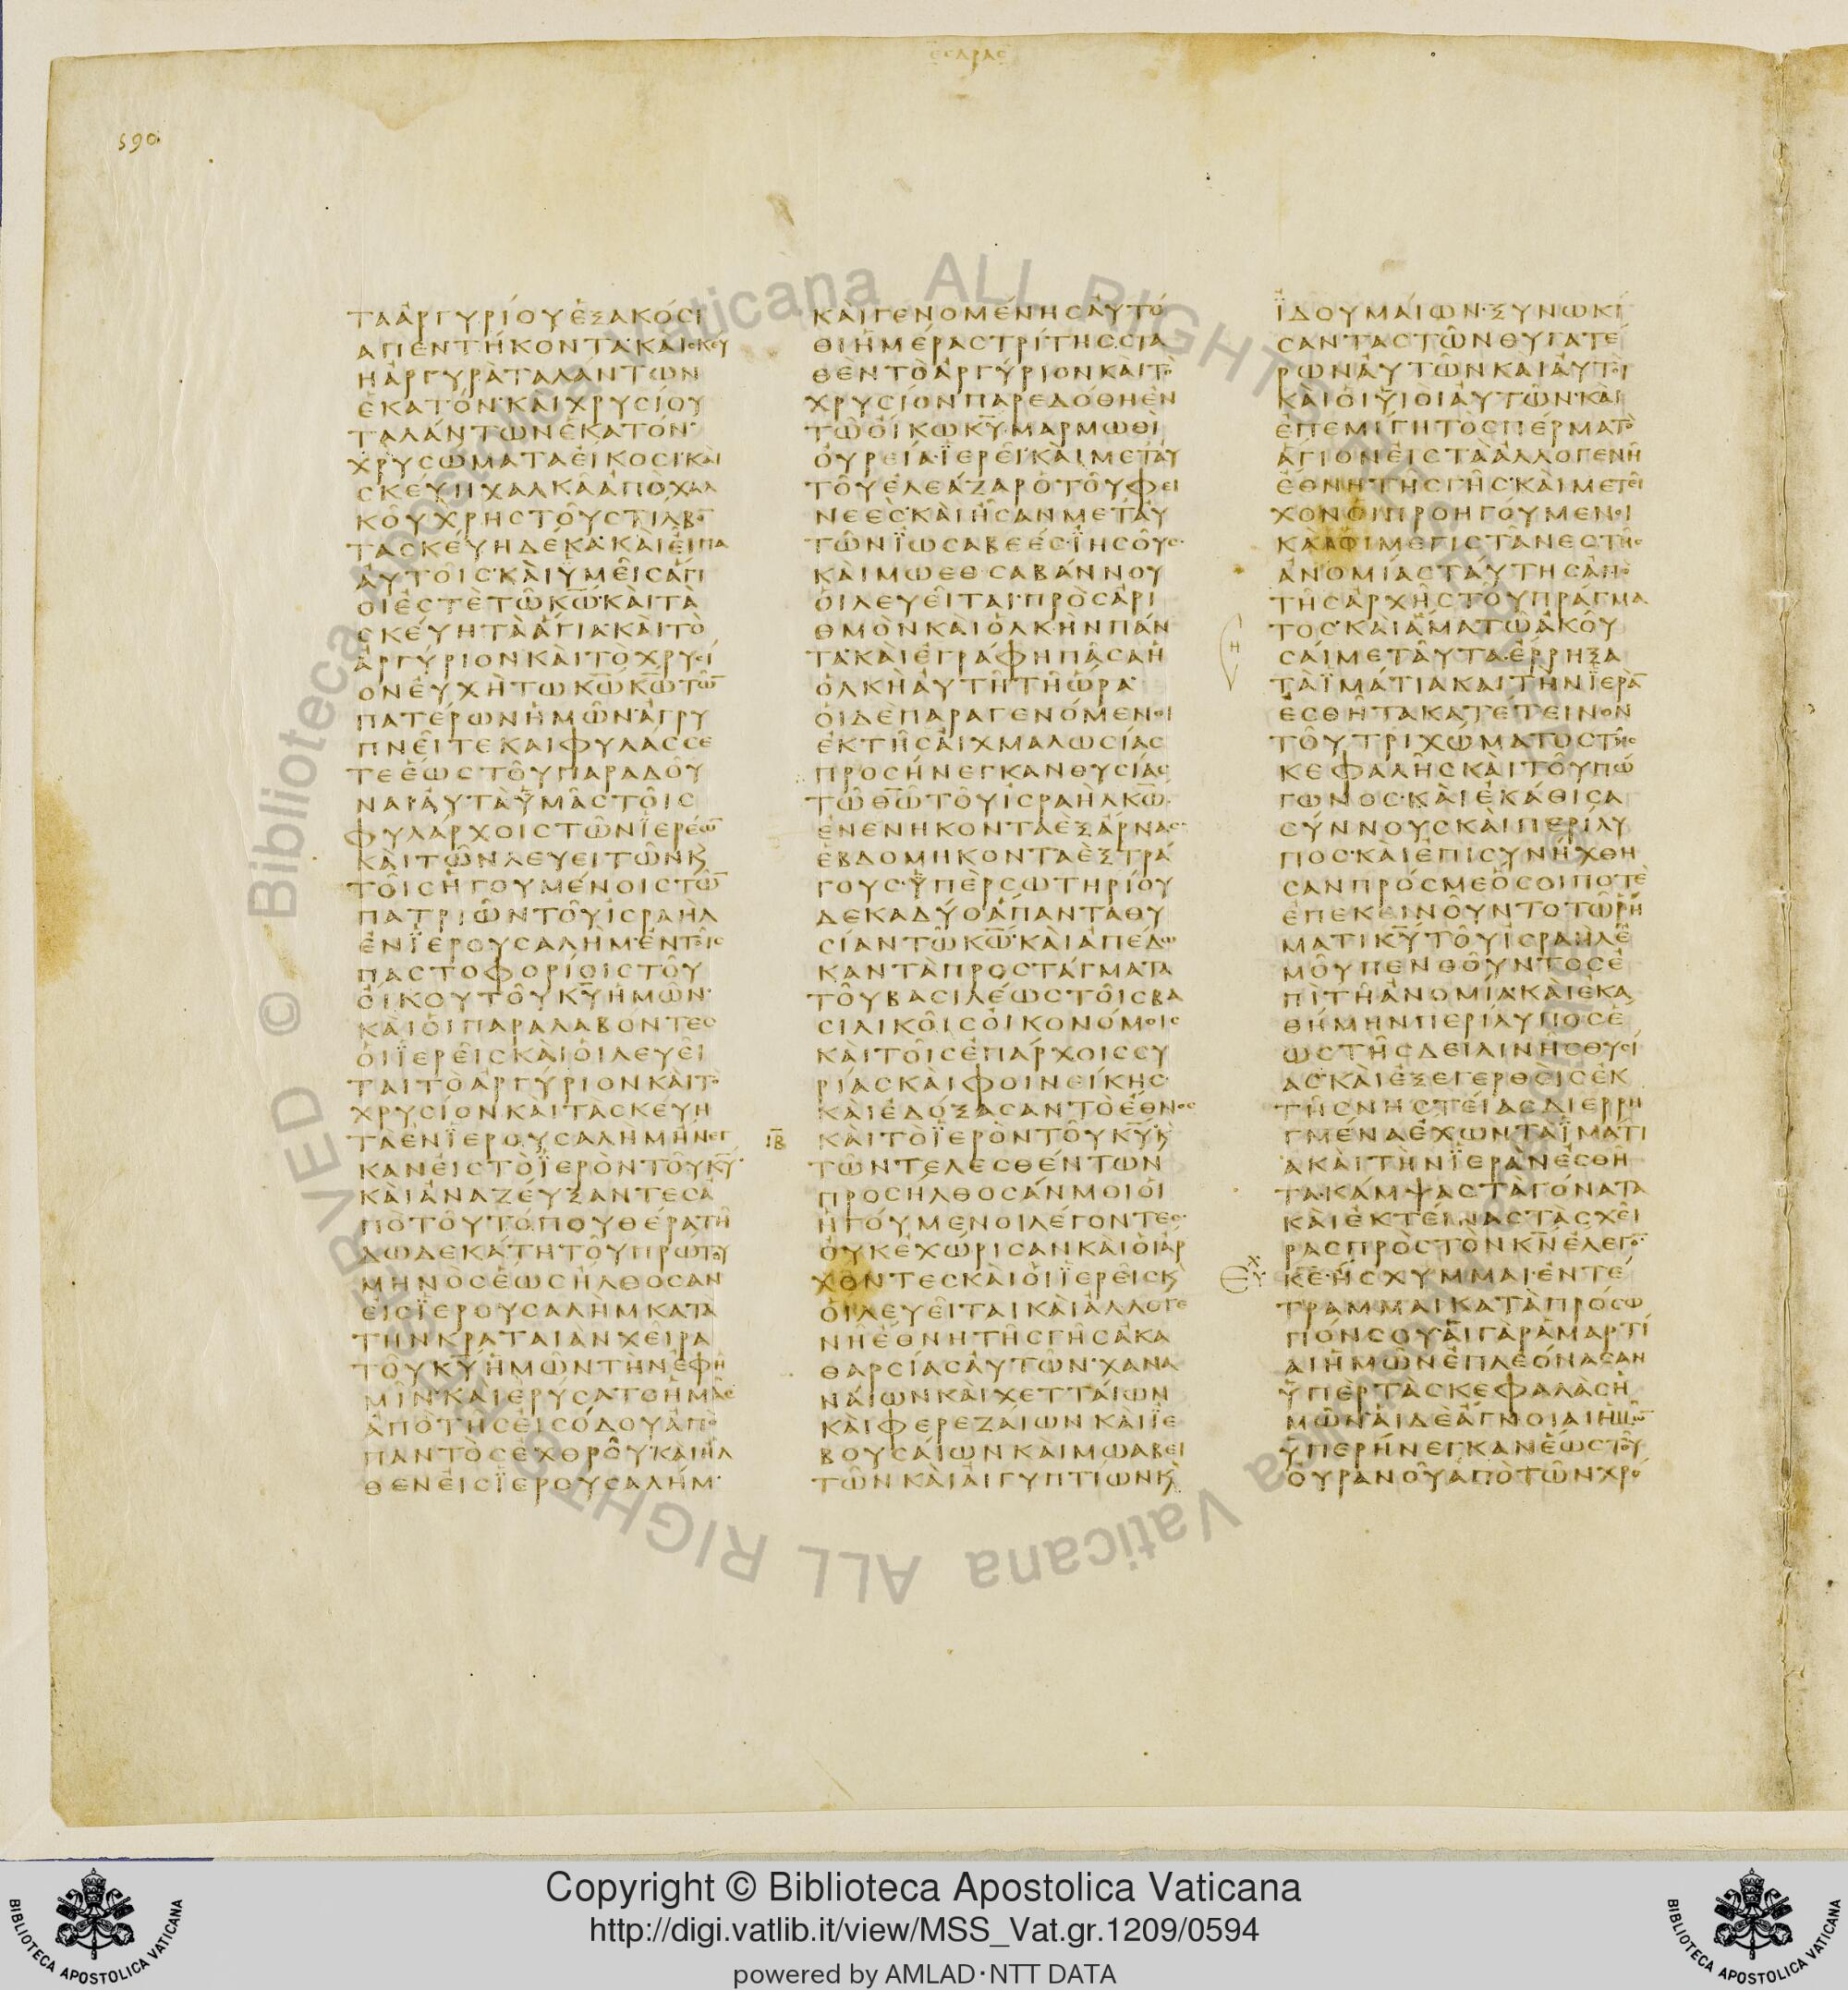 εσδρας
590.
ΤΑΑΡΓΥΡΙΟΥΕΞΑΚΟΣΙ
ΑΠΕΝΤΗΚΟΝΤΑ·ΚΑΙΣΚΕΥ
ΗΑΡΓΥΡΑΤΑΛΑΝΤΩΝ
ΕΚΑΤΟΝ·ΚΑΙΧΡΥΣΙΟΥ
ΤΑΛΑΝΤΩΝΕΚΑΤΟΝ·
ΧΡΥΣΩΜΑΤΑΕΙΚΟΣΙ·ΚΑΙ
ΣΚΕΥΗΧΑΛΚΑΑΠΟΧΑΛ
ΚΟΥΧΡΗΣΤΟΥΣΤΙΛΒΟ̅
ΤΑΣΚΕΥΗΔΕΚΑ·ΚΑΙΕΙΠΑ
ΑΥΤΟΙΣ·ΚΑΙΫΜΕΙΣΑΓΙ
ΟΙΕΣΤΕΤΩΚ̅Ω̅·ΚΑΙΤΑ
ΣΚΕΥΗΤΑΑΓΙΑ·ΚΑΙΤΟ
ΑΡΓΥΡΙΟΝΚΑΙΤΟΧΡΥΣΙ
ΟΝΕΥΧΗΤΩΚ̅Ω̅Κ̅Ω̅ΤΩ̅
ΠΑΤΕΡΩΝΗΜΩΝ·ΑΓΡΥ
ΠΝΕΙΤΕΚΑΙΦΥΛΑΣΣΕ
ΤΕΕΩΣΤΟΥΠΑΡΑΔΟΥ
ΝΑΙΑΥΤΑΫΜΑΣΤΟΙΣ
ΦΥΛΑΡΧΟΙΣΤΩΝΪΕΡΕΩ̅
ΚΑΙΤΩΝΛΕΥΕΙΤΩΝΚ
ΤΟΙΣΗΓΟΥΜΕΝΟΙΣΤΩ̅
ΠΑΤΡΙΩΝΤΟΥΙΣΡΑΗΛ
ΕΝΪΕΡΟΥΣΑΛΗΜ·ΕΝΤΟΙΣ
ΠΑΣΤΟΦΟΡΙΟΙΣΤΟΥ
ΟΙΚΟΥΤΟΥΚ̅Υ̅ΗΜΩΝ·
ΚΑΙΟΙΠΑΡΑΛΑΒΟΝΤΕΣ
ΟΙΪΕΡΕΙΣΚΑΙΟΙΛΕΥΕΙ
ΤΑΙΤΟΑΡΓΥΡΙΟΝΚΑΙΤΟ
ΧΡΥΣΙΟΝΚΑΙΤΑΣΚΕΥΗ
ΤΑΕΝΪΕΡΟΥΣΑΛΗΜΗΝΕΓ
ΚΑΝΕΙΣΤΟΪΕΡΟΝ·ΤΟΥΚ̅Υ̅·
ΚΑΙΑΝΑΖΕΥΞΑΝΤΕΣΑ
ΠΟΤΟΥΤΟΠΟΥΘΕΡΑΤΗ
ΔΩΔΕΚΑΤΗΤΟΥΠΡΩΤΟΥ
ΜΗΝΟΣΕΩΣΗΛΘΟΣΑΝ
ΕΙΣΪΕΡΟΥΣΑΛΗΜΚΑΤΑ
ΤΗΝΚΡΑΤΑΙΑΝΧΕΙΡΑ
ΤΟΥΚ̅Υ̅ΗΜΩΝΤΗΝΕΦΗ
ΜΙΝ·ΚΑΙΕΡΥΣΑΤΟΗΜΑΣ
ΑΠΟΤΗΣΕΙΣΟΔΟΥΑΠΟ
ΠΑΝΤΟΣΕΧΘΡΟΥ·ΚΑΙΗΛ
ΘΕΝΕΙΣΪΕΡΟΥΣΑΛΗΜ·
ΚΑΙΓΕΝΟΜΕΝΗΣΑΥΤΟ
ΘΙΗΜΕΡΑΣΤΡΙΤΗΣΣΤΑ
ΘΕΝΤΟΑΡΓΥΡΙΟΝΚΑΙΤΟ
ΧΡΥΣΙΟΝΠΑΡΕΔΟΘΗΕΝ
ΤΩΟΙΚΩΚ̅Υ̅·ΜΑΡΜΩΘΙ
ΟΥΡΕΙΑ·ΪΕΡΕΙ·ΚΑΙΜΕΤΑΥ
ΤΟΥΕΛΕΑΖΑΡΟΤΟΥΦΕΙ
ΝΕΕΣ·ΚΑΙΗΣΑΝΜΕΤΑΥ
ΤΩΝΪΩΣΑΒΕΕΣ·ΪΗΣΟΥΣ·
ΚΑΙΜΩΕΘ·ΣΑΒΑΝΝΟΥ
ΟΙΛΕΥΕΙΤΑΙ·ΠΡΟΣΑΡΙ
ΘΜΟΝΚΑΙΟΛΚΗΝΠΑΝ
ΤΑ·ΚΑΙΕΓΡΑΦΗΠΑΣΑΗ
ΟΛΚΗΑΥΤΗΤΗΩΡΑ·
ΟΙΔΕΠΑΡΑΓΕΝΟΜΕΝΟΙ
ΕΚΤΗΣΑΙΧΜΑΛΩΣΙΑΣ
ΠΡΟΣΗΝΕΓΚΑΝΘΥΣΙΑΣ
ΤΩΘ̅Ω̅ΤΟΥΙΣΡΑΗΛΚ̅Ω̅·
ΕΝΕΝΗΚΟΝΤΑΕΞΑΡΝΑΣ·
ΕΒΔΟΜΗΚΟΝΤΑΕΞΤΡΑ
ΓΟΥΣ·ΫΠΕΡΣΩΤΗΡΙΟΥ
ΔΕΚΑΔΥΟ·ΑΠΑΝΤΑΘΥ
ΣΙΑΝΤΩΚ̅Ω̅·ΚΑΙΑΠΕΔΩ
ΚΑΝΤΑΠΡΟΣΤΑΓΜΑΤΑ
ΤΟΥΒΑΣΙΛΕΩΣΤΟΙΣΒΑ
ΣΙΛΙΚΟΙΣΟΙΚΟΝΟΜΟΙΣ
ΚΑΙΤΟΙΣΕΠΑΡΧΟΙΣΣΥ
ΡΙΑΣΚΑΙΦΟΙΝΕΙΚΗΣ·
ΚΑΙΕΔΟΞΑΣΑΝΤΟΕΘΝΟΣ
Ι̅Β̅
ΚΑΙΤΟΪΕΡΟΝΤΟΥΚ̅Υ̅·Κ
ΤΩΝ·ΤΕΛΕΣΘΕΝΤΩΝ
ΠΡΟΣΗΛΘΟΣΑΝΜΟΙΟΙ
ΗΓΟΥΜΕΝΟΙΛΕΓΟΝΤΕΣ·
ΟΥΚΕΧΩΡΙΣΑΝΚΑΙΟΙΑΡ
ΧΟΝΤΕΣΚΑΙΟΙΪΕΡΕΙΣΚ
ΟΙΛΕΥΕΙΤΑΙΚΑΙΑΛΛΟΓΕ
ΝΗΕΘΝΗΤΗΣΓΗΣΑΚΑ
ΘΑΡΣΙΑΣΑΥΤΩΝ·ΧΑΝΑ
ΝΑΙΩΝΚΑΙΧΕΤΤΑΙΩΝ
ΚΑΙΦΕΡΕΖΑΙΩΝΚΑΙΪΕ
ΒΟΥΣΑΙΩΝΚΑΙΜΩΑΒΕΙ
ΤΩΝΚΑΙΑΙΓΥΠΤΙΩΝΚ
ΪΔΟΥΜΑΙΩΝ·ΞΥΝΩΚΙ
ΣΑΝΤΑΣΤΩΝΘΥΓΑΤΕ
ΡΩΝΑΥΤΩΝΚΑΙΑΥΤΟΙ
ΚΑΙΟΙΫΙΟΙΑΥΤΩΝ·ΚΑΙ
ΕΠΕΜΙΓΗΤΟΣΠΕΡΜΑΤΟ
ΑΓΙΟΝΕΙΣΤΑΑΛΛΟΓΕΝΗ
ΕΘΝΗΤΗΣΓΗΣ·ΚΑΙΜΕΤΕΙ
ΧΟΝΟΙΠΡΟΗΓΟΥΜΕΝΟΙ
ΚΑΙΟΙΜΕΓΙΣΤΑΝΕΣΤΗΣ
ΑΝΟΜΙΑΣΤΑΥΤΗΣΑΠΟ
ΤΗΣΑΡΧΗΣΤΟΥΠΡΑΓΜΑ
ΤΟΣ·ΚΑΙΑΜΑΤΩΑΚΟΥ
Η
ΣΑΙΜΕΤΑΥΤΑ·ΕΡΡΗΞΑ
ΤΑΪΜΑΤΙΑΚΑΙΤΗΝΪΕΡΑ̅
ΕΣΘΗΤΑΚΑΤΕΤΕΙΝΟΝ
ΤΟΥΤΡΙΧΩΜΑΤΟΣΤΗΣ
ΚΕΦΑΛΗΣΚΑΙΤΟΥΠΩ
ΓΩΝΟΣ·ΚΑΙΕΚΑΘΙΣΑ
ΣΥΝΝΟΥΣΚΑΙΠΕΡΙΛΥ
ΠΟΣ·ΚΑΙΕΠΙΣΥΝΗΧΘΗ
ΣΑΝΠΡΟΣΜΕΟΣΟΙΠΟΤΕ
ΕΠΕΚΕΙΝΟΥΝΤΟΤΩΡΗ
ΜΑΤΙΚ̅Υ̅ΤΟΥΙΣΡΑΗΛΕ
ΜΟΥΠΕΝΘΟΥΝΤΟΣΕ
ΠΙΤΗΑΝΟΜΙΑ·ΚΑΙΕΚΑ
ΘΗΜΗΝΠΕΡΙΛΥΠΟΣΕ
ΩΣΤΗΣΔΕΙΛΙΝΗΣΘΥΣΙ
ΑΣ·ΚΑΙΕΞΕΓΕΡΘΕΙΣΕΚ
ΤΗΣΝΗΣΤΕΙΑΣΔΙΕΡΡΗ
ΓΜΕΝΑΕΧΩΝΤΑΪΜΑΤΙ
ΑΚΑΙΤΗΝΪΕΡΑΝΕΣΘΗ
ΤΑ·ΚΑΜΨΑΣΤΑΓΟΝΑΤΑ
ΚΑΙΕΚΤΕΙΝΑΣΤΑΣΧΕΙ
ΡΑΣΠΡΟΣΤΟΝΚ̅Ν̅ΕΛΕΓΟ̅·
Κ̅Ε̅·ΗΣΧΥΜΜΑΙ·ΕΝΤΕ
ΤΡΑΜΜΑΙΚΑΤΑΠΡΟΣΩ
ΠΟΝΣΟΥ·ΑΙΓΑΡΑΜΑΡΤΙ
ΑΙΗΜΩΝΕΠΛΕΟΝΑΣΑΝ
ΫΠΕΡΤΑΣΚΕΦΑΛΑΣΗ
ΜΩΝ·ΑΙΔΕΑΓΝΟΙΑΙΗΜΩ̅
ΫΠΕΡΗΝΕΓΚΑΝΕΩΣΤΟΥ
ΟΥΡΑΝΟΥΑΠΟΤΩΝΧΡΟ
Copyright © Biblioteca Apostolica Vaticana
http://digi.vatlib.it/view/MSS_Vat.gr.1209/0594
powered by AMLAD·NTT DATA
BIBLIOTECA APOSTOLICA VATICANA
BIBLIOTECA APOSTOLICA VATICANA
© Biblioteca Vaticana ALL RIGHTS RESERVED
Vaticana ALL RIGHTS RESERVED